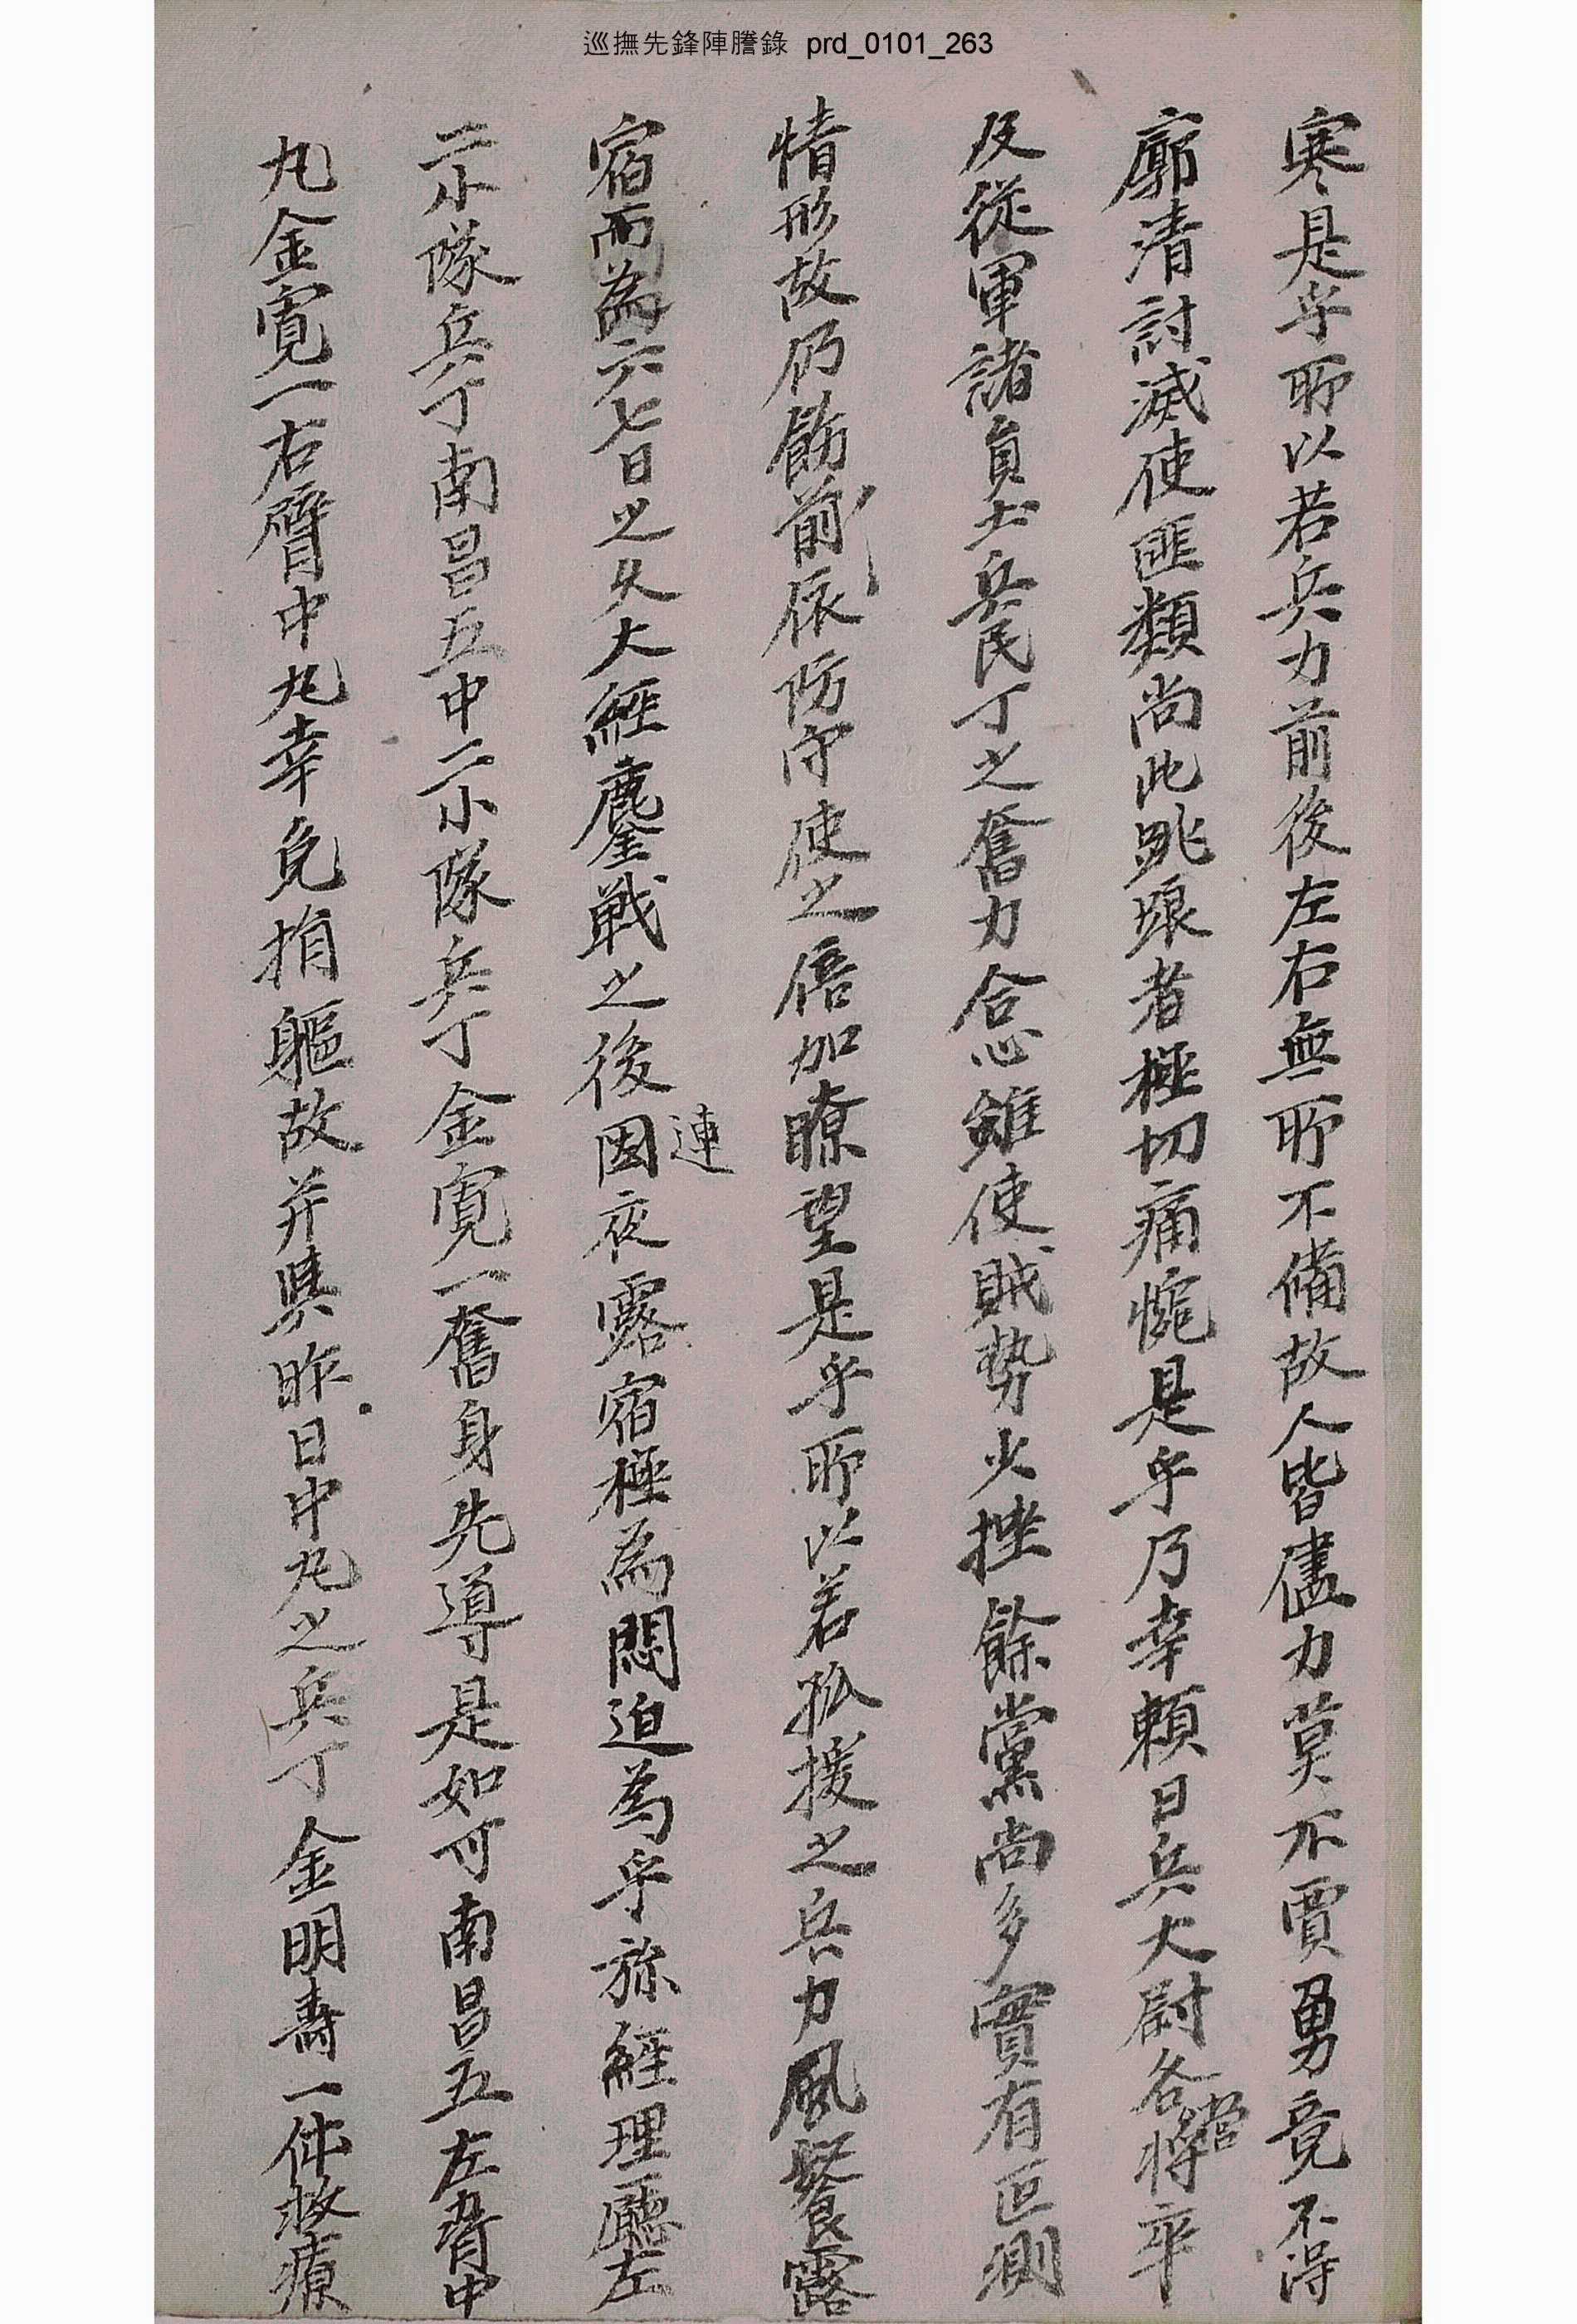 巡撫先鋒陣謄錄 prd_0101_263
寒是乎所以若兵力前後左右無所不備故人皆儘力莫不賈勇竟不得
廓清討滅使匪類尚此跳踉者極切痛惋是乎乃幸賴日兵大尉各營將卒
及從軍諸員士兵民丁之奮力合心雖使賊勢少挫餘黨尚多實有叵測
情形故仍飭前依防守使之倍加瞭望是乎所以若孤援之兵力風餐露
宿而為六七日之久大經鏖戰之後因連夜露宿極為悶迫為乎旀經理廳左
一小隊兵丁南昌五中二小隊兵丁金寬一奮身先導是如可南昌五左脅中
丸金寬一右臂中丸幸免捐軀故并與昨日中丸之兵丁金明壽一体救療